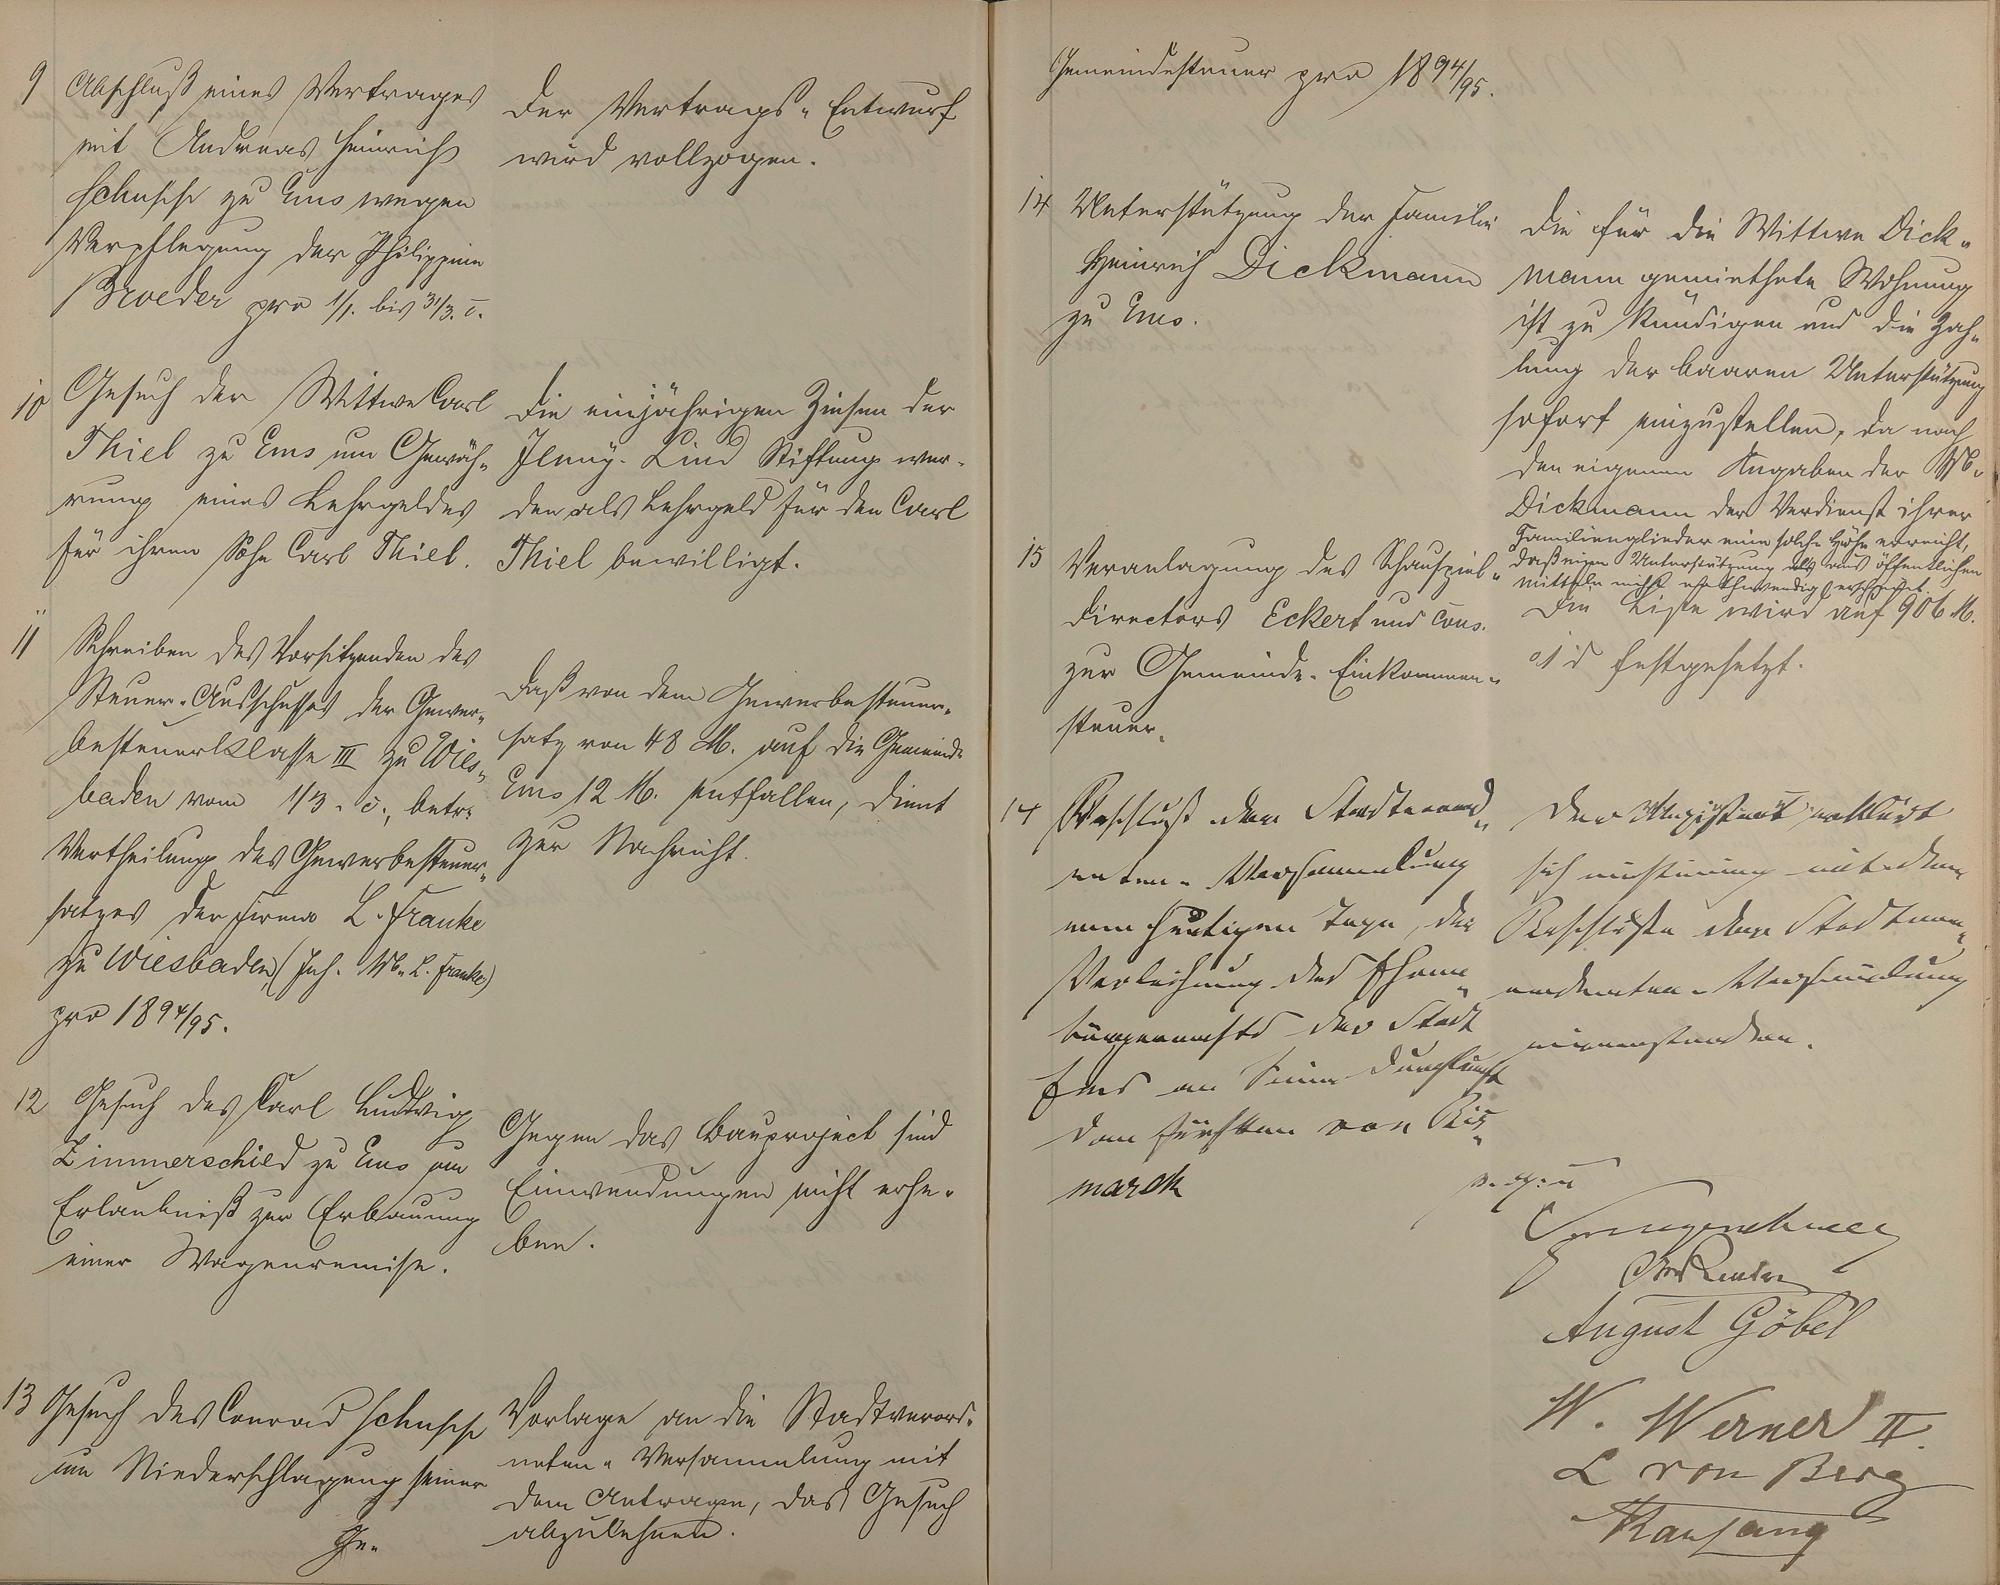 9 Abschluß eines Vertrages
mit Andreas Heinrich
Schupp zu Ems wegen
Verpflegung der Philippine
Broeder pro 1/1. bis 31/3. c.
Der Vertrags-Entwurf
wird vollzogen.
10 Gesuch der Wittwe Carl
Thiel zu Ems um Gewäh-
rung eines Lehrgeldes
für ihren Sohn Carl Thiel.
Die einjährigen Zinsen der
Jenny-Lind Stiftung wer-
den als Lehrgeld für den Carl
Thiel bewilligt.
11 Schreiben des Vorsitzenden des
Steuer-Ausschusses der Gewer-
besteuerklasse III zu Wies-
baden vom 1/3. c., betr.
Vertheilung des Gewerbesteuer-
satzes der Firma L. Franke
zu Wiesbaden (Inh. Ww. L. Franke)
pro 1894/95.
Daß von dem Gewerbesteuer-
satz von 48 M. auf die Gemeinde
Ems 12 M. entfallen, dient
zur Nachricht.
12 Gesuch des Carl Ludwig
Zimmerschied zu Ems um
Erlaubniß zur Erbauung
einer Wagenremise.
Gegen das Bauproject sind
Einwendungen nicht erho-
ben.
13 Gesuch des Conrad Schupp
um Niederschlagung seiner
Ge-
Vorlage an die Stadtverord-
neten-Versammlung mit
dem Antrage, das Gesuch
abzulehnen.
Gemeindesteuer pro 1894/95.
14 Unterstützung der Familie
Heinrich Dickmann
zu Ems.
Die für die Wittwe Dick-
mann gemiethete Wohnung
ist zu kündigen und die Zah-
lung der baaren Unterstützung
sofort einzustellen, da nach
den eigenen Angaben der Ww.
Dickmann der Verdienst ihrer
Familienglieder eine solche Höhe erreicht,
daß eine Unterstützung als aus öffentlichen
Mitteln nicht nothwendig erscheint.
15 Veranlagung des Schauspiel-
directors Eckert und Cons.
zur Gemeinde-Einkommen-
steuer.
Die Liste wird auf 906 M.
festgesetzt.
14 Beschluß der Stadtverord-
neten-Versammlung
vom heutigen Tage, die
Verleihung des Ehren-
bürgerrechts der Stadt
Ems an Seine Durchlaucht
den Fürsten von Bis-
marck
Der Magistrat erklärt
sich einstimmig mit dem
Beschlusse der Stadtver-
ordneten-Versammlung
einverstanden.
August Göbel
W. Werner II.
L von Berg